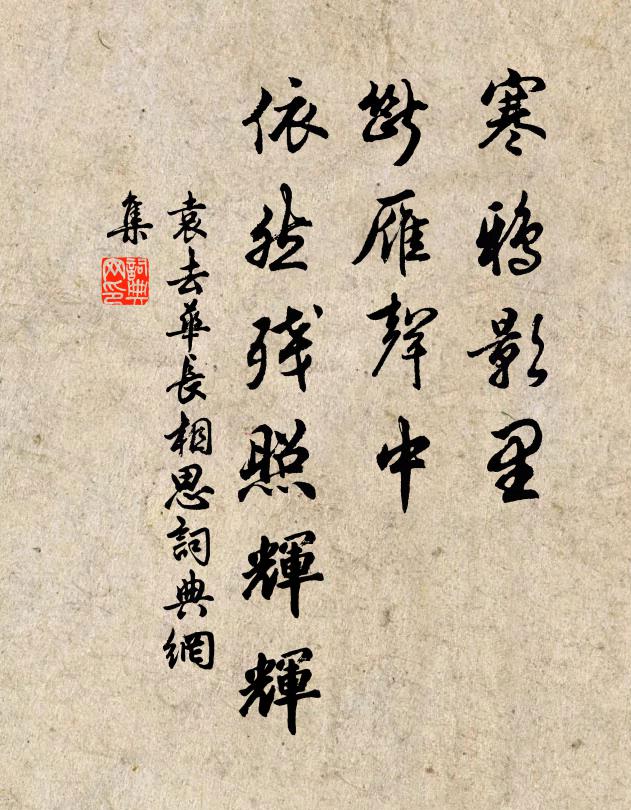 寒鴉影里
斷雁聲中
依然残照輝輝
袁去華長相思詞典網
集
詞典
网印